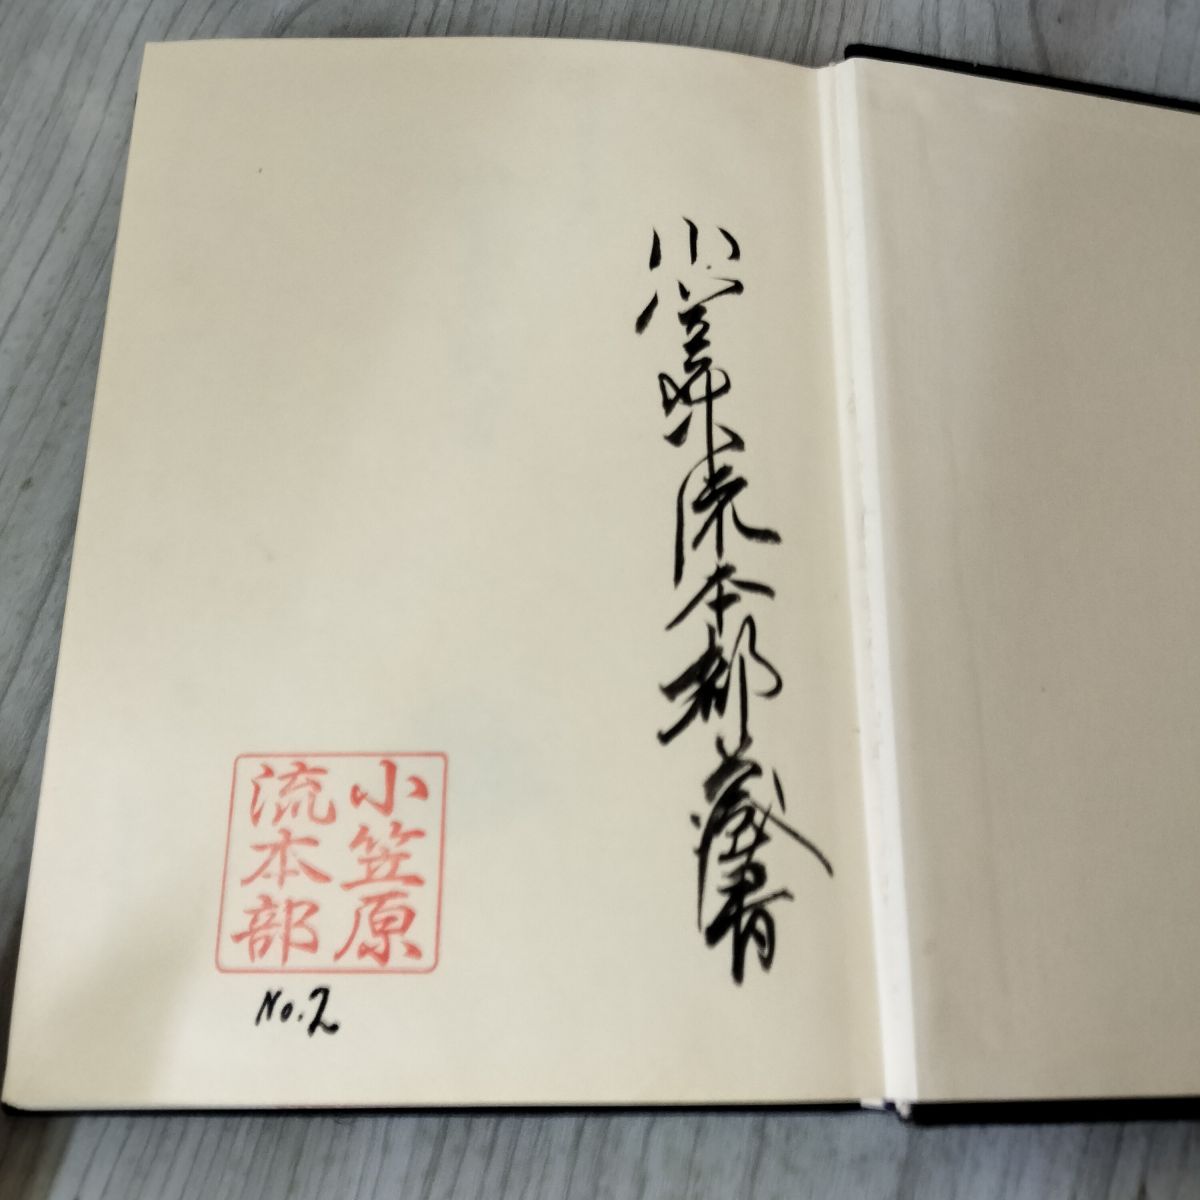 小笠原流本部蔵書
小笠原
流本部
No.2